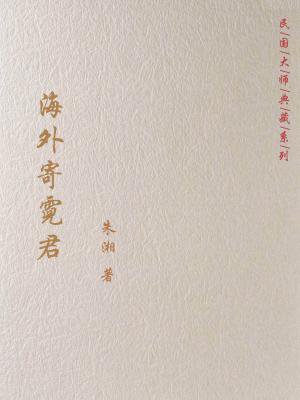 民国大师典藏系列
海外寄霓君
朱湘 著